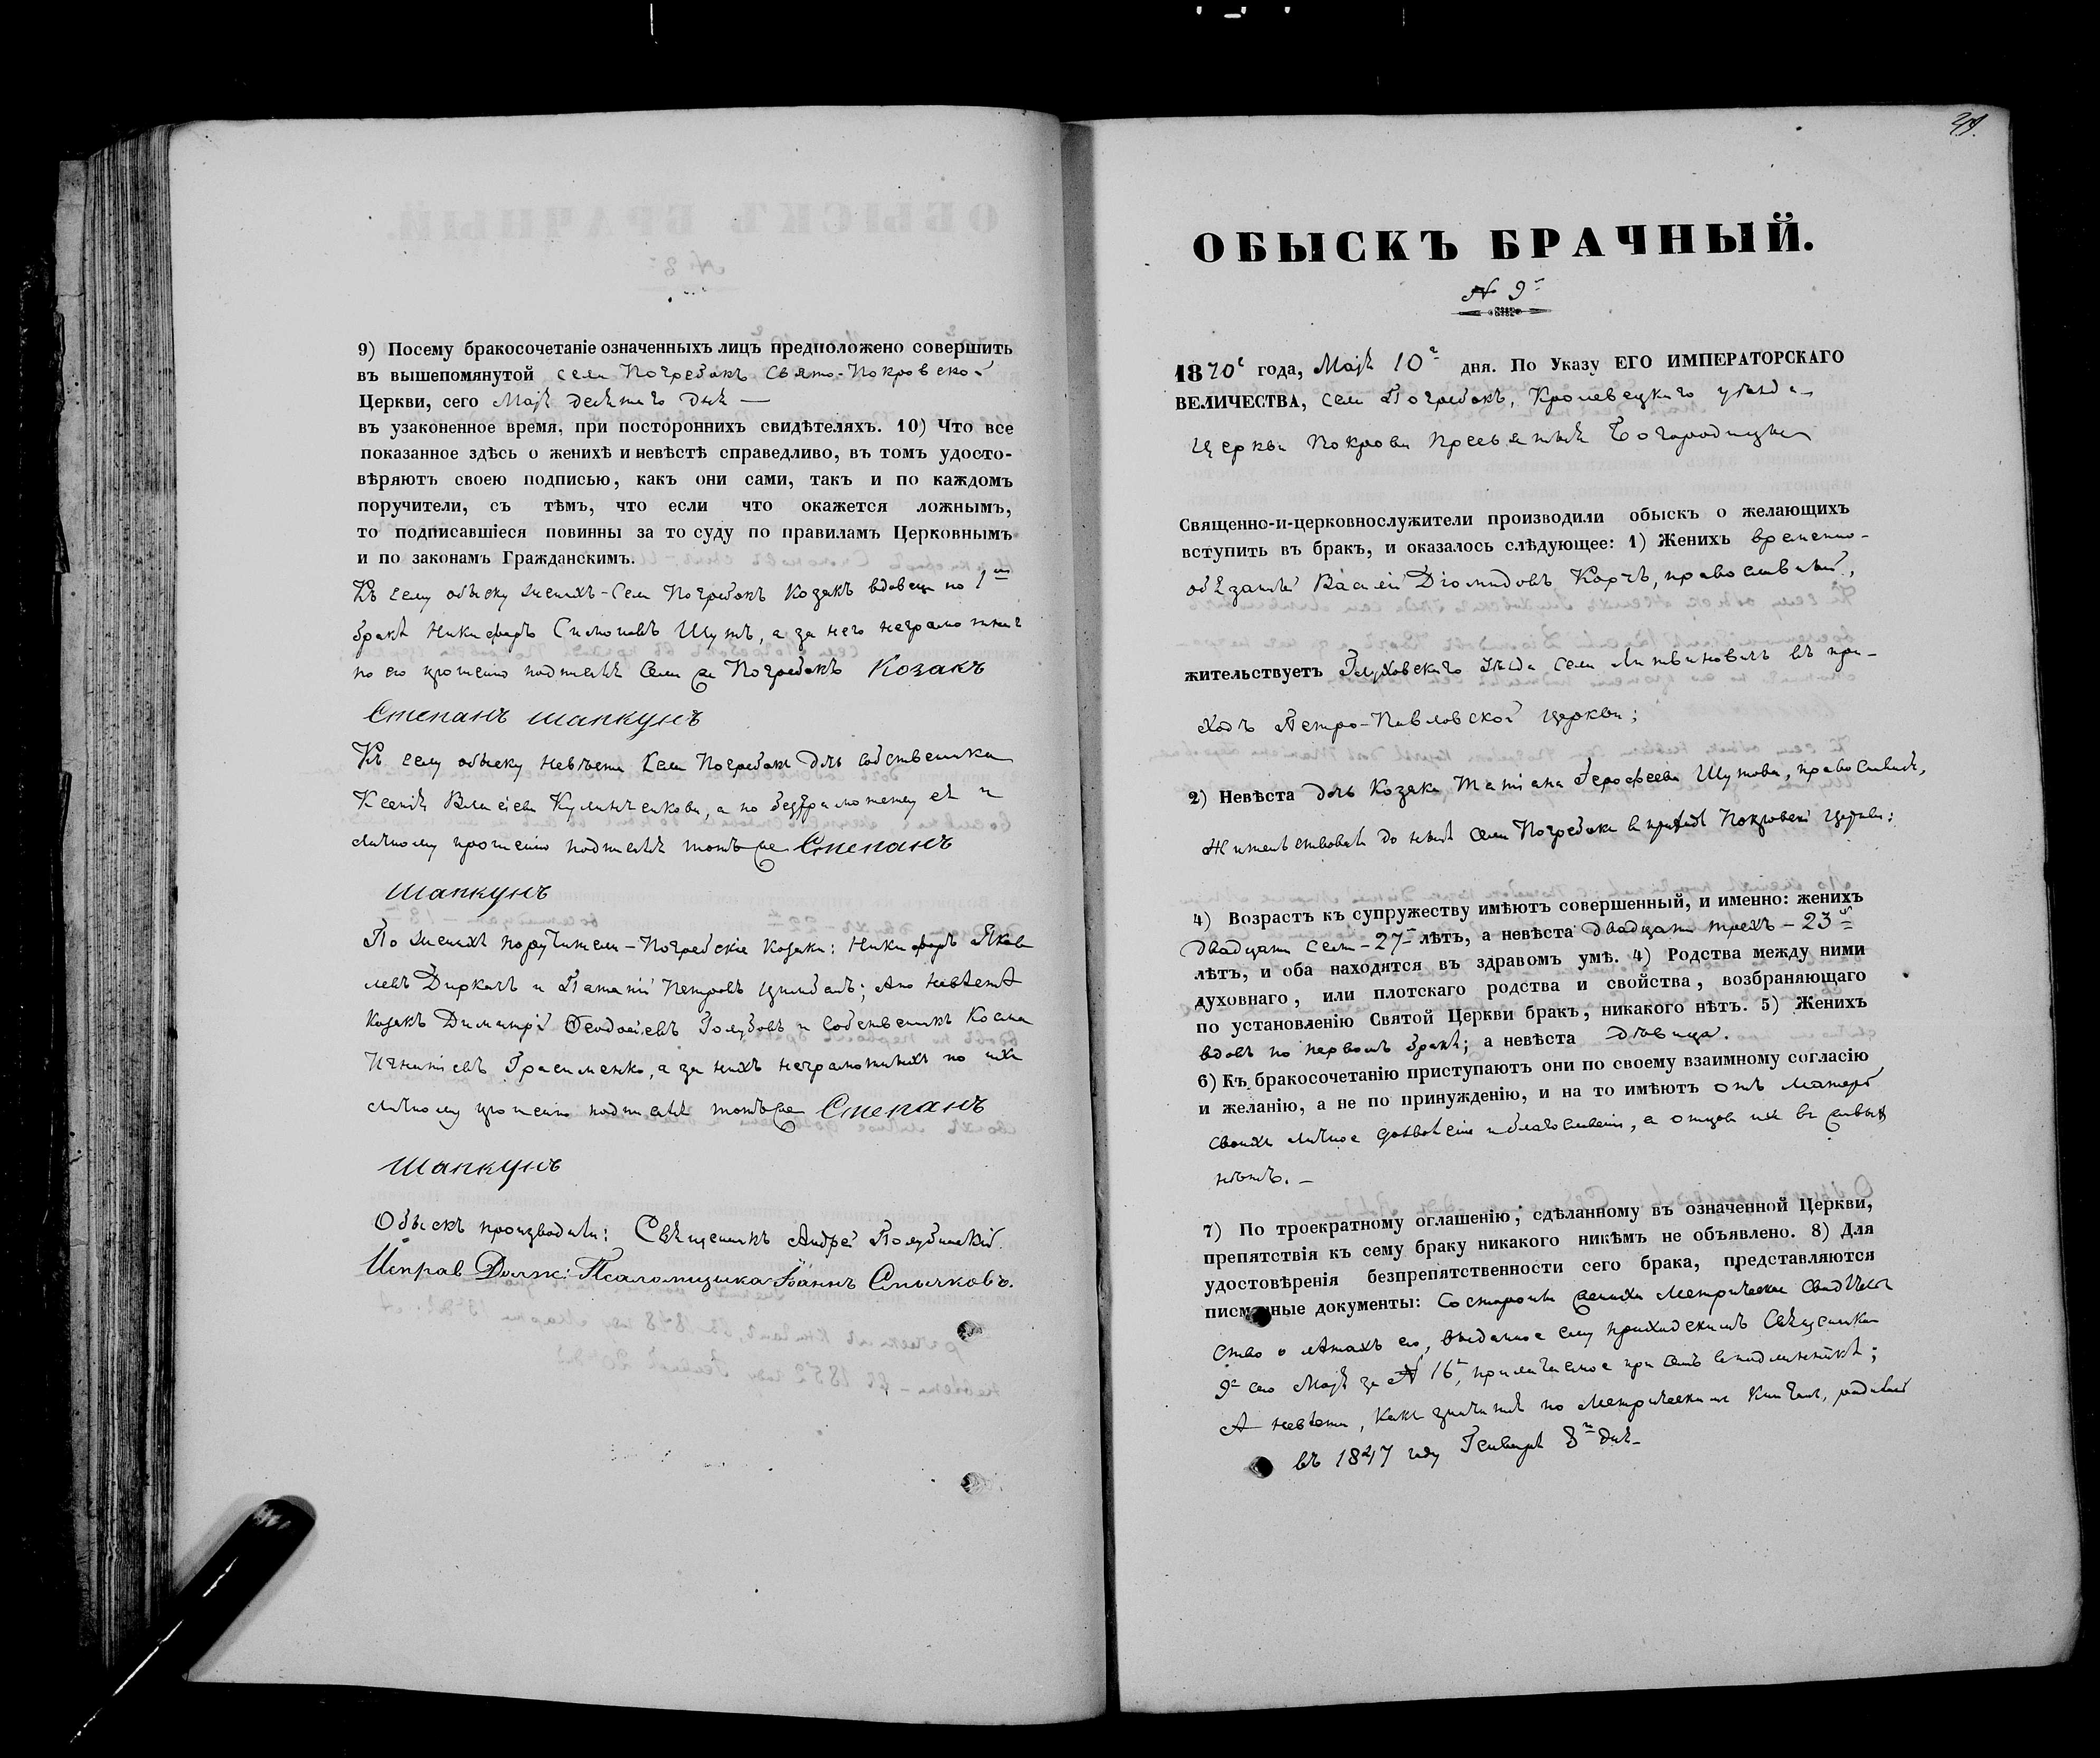 9) Посему бракосочетаніе означенныхъ лицъ предположено совершить
въ вышепомянутой села Погребокъ Свято-Покровской
Церкви, сего Маія десятаго дня —
въ узаконенное время, при постороннихъ свидѣтеляхъ. 10) Что все
показанное здѣсь о женихѣ и невѣстѣ справедливо, въ томъ удосто-
вѣряютъ своею подписью, какъ они сами, такъ и по каждомъ
поручители, съ тѣмъ, что если что окажется ложнымъ,
то подписавшіеся повинны за то суду по правиламъ Церковнымъ
и по законамъ Гражданскимъ.
Къ сему обыску женихъ - Села Погребокъ Козакъ вдовецъ по 1мъ
бракѣ Никифоръ Симоновъ Шутъ, а за него неграмотнаго
по его прошенію подписался Села Погребокъ Козакъ
Степанъ Шапкунъ
Къ сему обыску невѣста Села Погребокъ дочь собственника
Ксенія Власіева, а по безграмотству ея и
личному прошенію подписался тотъ же Степанъ
Шапкунъ
По женихѣ поручители - Погребскіе Козаки: Никифоръ Яков
левъ Диркачъ и Петровъ Цимбалъ; А по невѣстѣ
Козакъ Димитрій Ѳеодосіевъ Голубовъ и Собственникъ Косма
Игнатіевъ Герасименко, а за нихъ неграмотныхъ по ихъ
личному прошенію подписался тотъ же Степанъ
Шапкунъ
Обыскъ производили: Священникъ Андрей Полубинскій.
Исправ. Долж: Псаломщика Іоаннъ Смычковъ.
ОБЫСКЪ БРАЧНЫЙ.
№ 9й
1870г года, Маія 10го дня. По Указу ЕГО ИМПЕРАТОРСКАГО
ВЕЛИЧЕСТВА, села Погребокъ, Кролевецкаго уѣзда
Церкви Покрова Пресвятыя Богородицы
Священно-и-церковнослужители производили обыскъ о желающихъ
вступить въ бракъ, и оказалось слѣдующее: 1) Женихъ временно-
обязанный Василій Діомидовъ Корчъ, православный,
жительствуетъ Глуховскаго уѣзда села Литвиновичъ въ при-
ходѣ Петро-Павловской церкви;
2) Невѣста дочь Козака Татіана Іерофеева Шутова, православная,
Жительствовала до нынѣ села Погребокъ въ приходѣ Покровской церкви;
4) Возрастъ къ супружеству имѣютъ совершенный, и именно: женихъ
двадцати семи - 27 лѣтъ, а невѣста двадцати трехъ - 23хъ
лѣтъ, и оба находятся въ здравомъ умѣ. 4) Родства между ними
духовнаго, или плотскаго родства и свойства, возбраняющаго
по установленію Святой Церкви бракъ, никакого нѣтъ. 5) Женихъ
вдовъ по первомъ бракѣ; а невѣста дѣвица.
6) Къ бракосочетанію приступаютъ они по своему взаимному согласію
и желанію, а не по принужденію, и на то имѣютъ отъ матерей
своихъ личное дозволеніе и благословеніе, а отцовъ ихъ въ живыхъ
нѣтъ. —
7) По троекратному оглашенію, сдѣланному въ означенной Церкви,
препятствія къ сему браку никакого никѣмъ не объявлено. 8) Для
удостовѣренія безпрепятственности сего брака, представляются
писменные документы: Со стороны жениха Метрическое Свидѣтель
ство о лѣтахъ его, выданное ему приходскимъ Священникомъ
9го сего Маія за № 16, прилагаемое при семъ въ подлинникѣ;
А невѣста, какъ значится по Метрическимъ Книгамъ, родилась
въ 1847 году Генваря 8го дня —